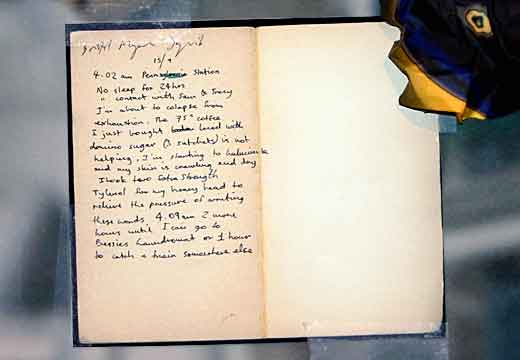 13/9
4.02 am Pennsylvania Station
No sleep for 24hrs
" contact with Sam & Tracy
I'm about to colapse from
exhaustion. The 75¢ coffee
I just bought laced with
domino sugar (3 satchets) is not
helping, I'm starting to halucinate
and my skin is crawling and dry
I took two Extra Strength
Tylenol for my heavy head to
relieve the pressure of writing
these words 4.09am 2 more
hours until I can go to
Bessies Laundromat or 1 hour
to catch a train somewhere else